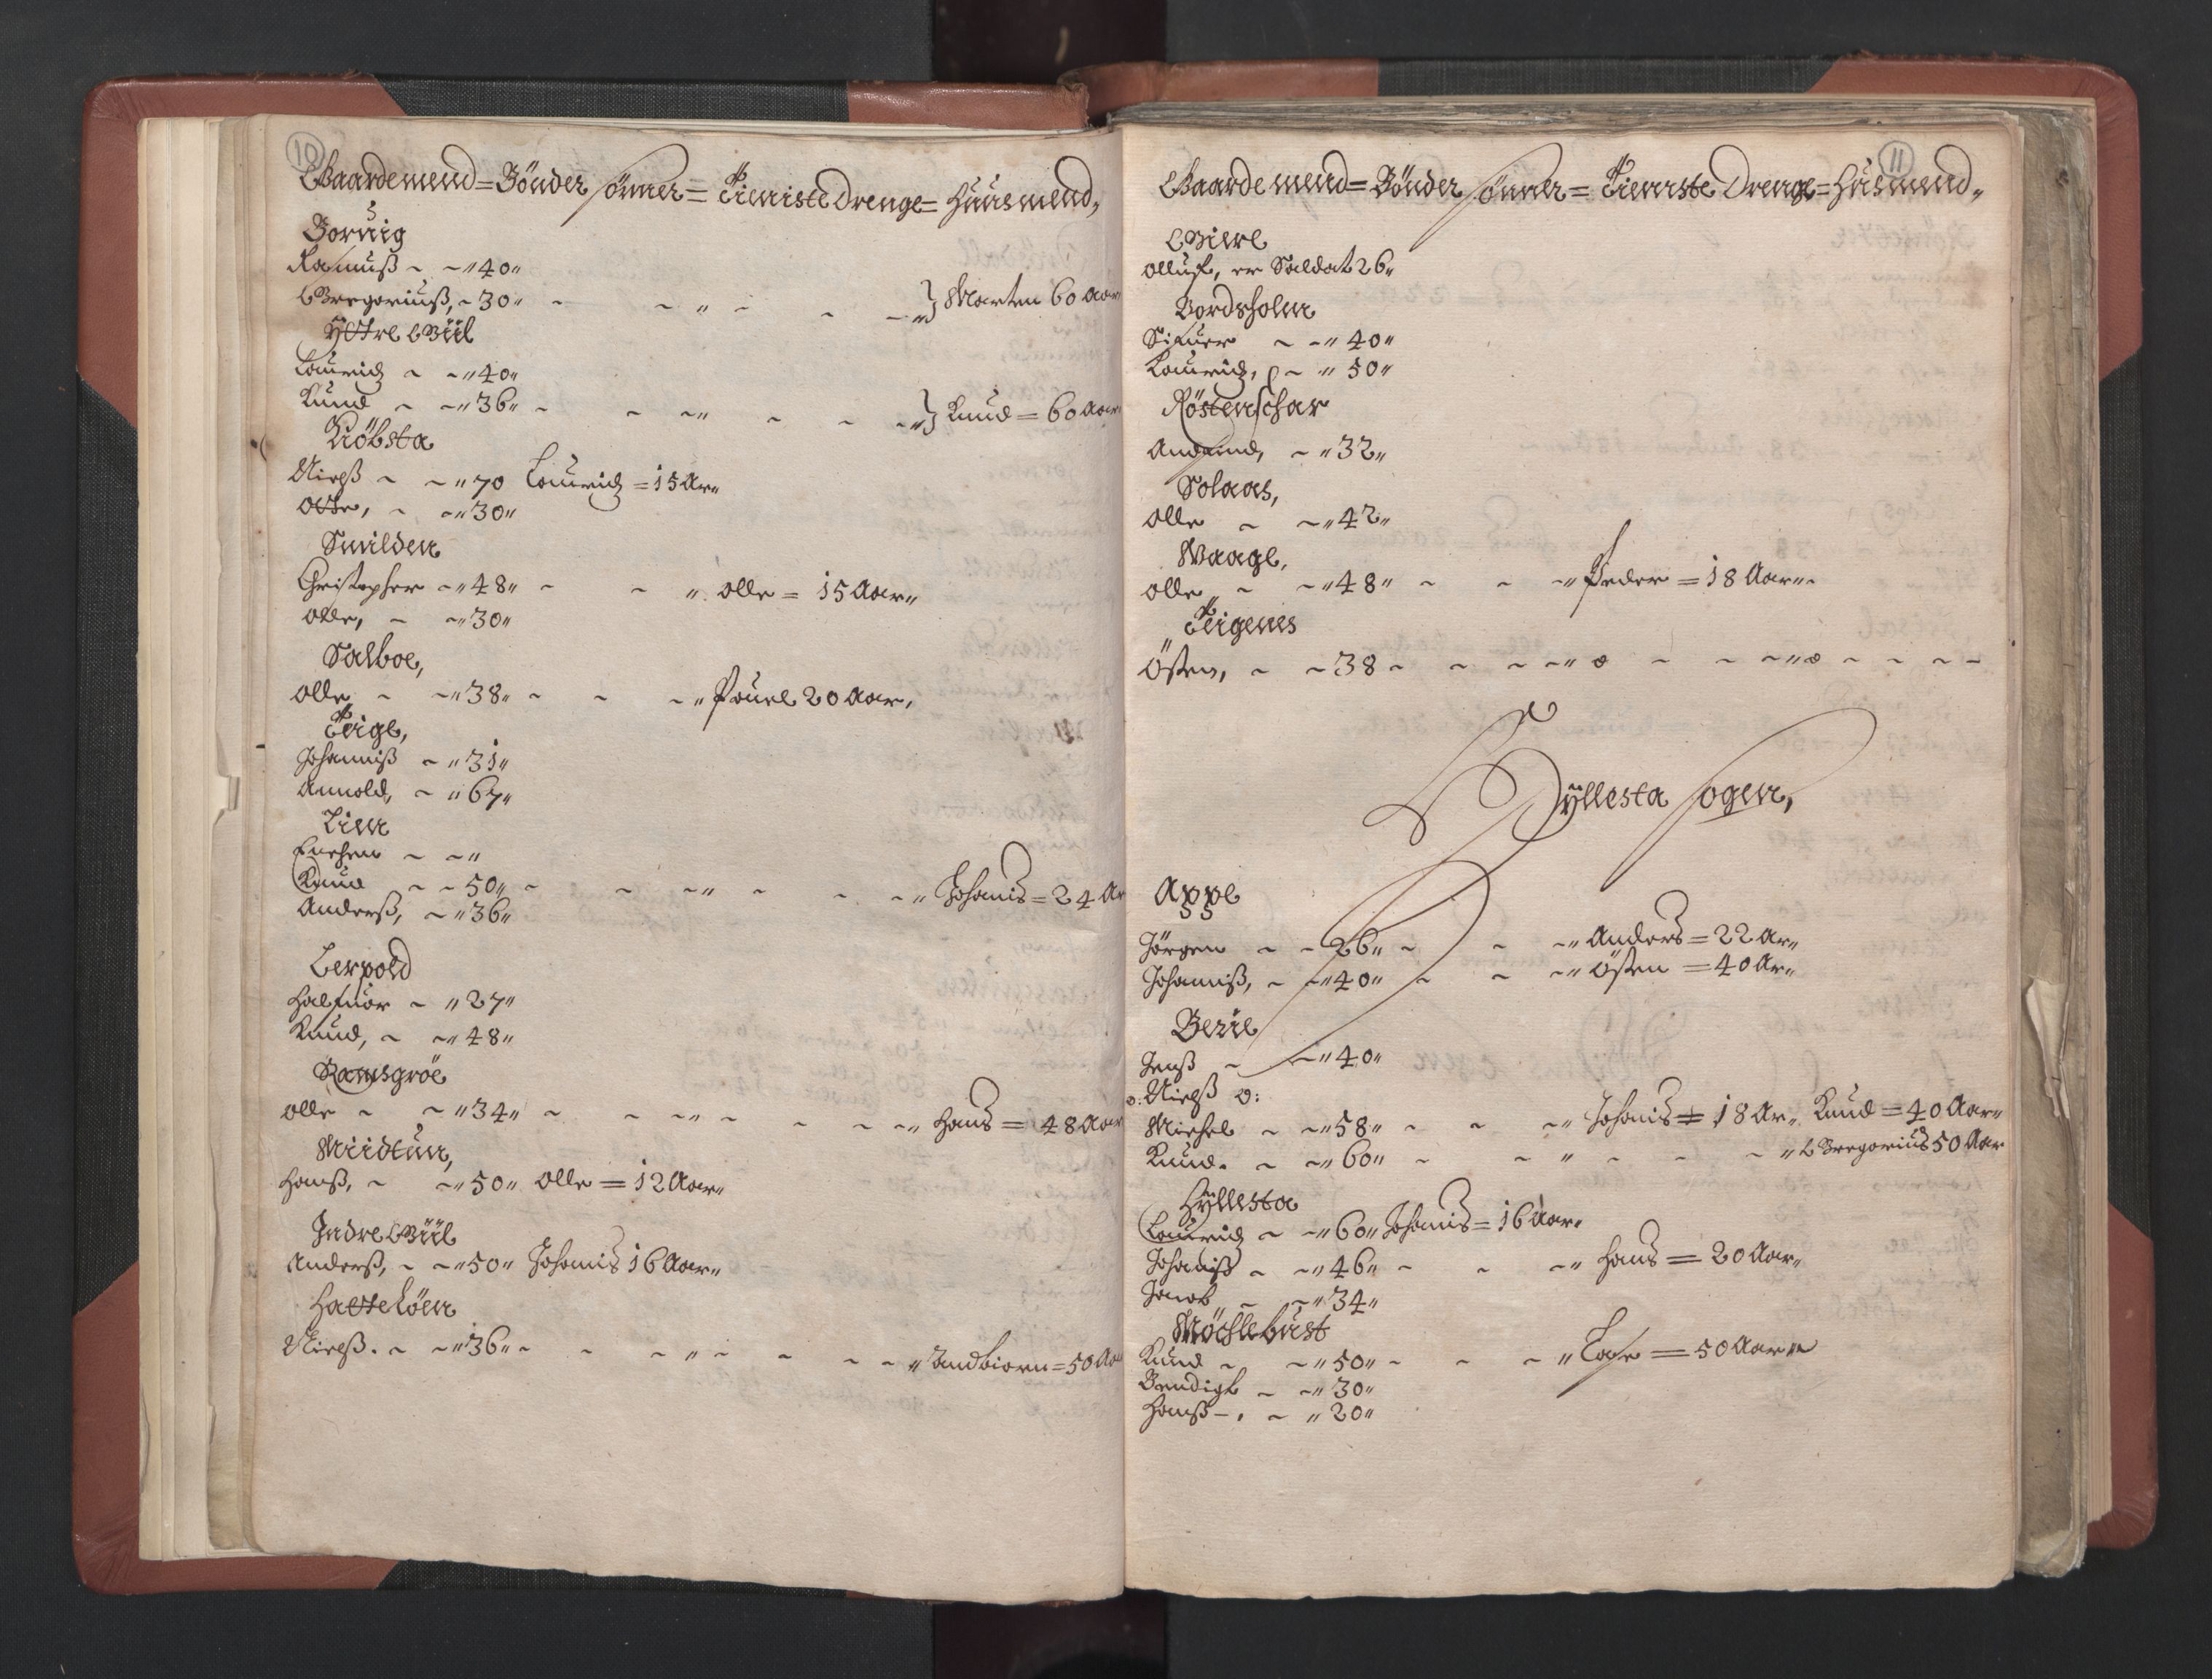 10
Gaardemend= Bönder sönner= Tienniste Drenge= Huusmend,
Boruig
Rasmuß ~ ~ " 40 "
Gregoriuß, ~ 30 " ~ ~ " ~ ~ ~ " } Morten 60 Aar
Ÿttre Giil
Lauridz ~ ~ " 40 "
Knud ~ ~ " 36 " ~ ~ ~ " ~ ~ ~ " } Knud = 60 Aar
Kiöbsta
Nielß ~ ~ " 70 Lauridz = 15 Aar "
Otte, ~ ~ " 30 "
Smilden
Christopher ~ " 48 " ~ ~ " Olle = 15 Aar "
Olle, ~ ~ " 30 "
Salboe,
Olle ~ ~ " 38 " ~ ~ ~ " Pouel 20 Aar,
Teige,
Johanniß ~ " 31 "
Annold, ~ " 67 "
Lien
~ ~ "
Knud ~ ~ 50 " ~ ~ ~ " ~ ~ ~ " Johanis = 24 Ar
Anderß, ~ " 36 "
Lerpold
Halfuor ~ " 27 "
Knud, ~ ~ " 48 "
Ramsgröe
Olle ~ ~ " 34 " ~ ~ ~ " ~ ~ ~ ~ " Hans = 48 Aar
Miidtun,
Hanß, ~ ~ " 50 " Olle = 12 Aar "
Indre Giil
Anderß, ~ ~ " 50 " Johanis 16 Aar "
Hatteløen
Nielß. ~ ~ " 36 " ~ ~ ~ " ~ ~ ~ ~ " Andbiorn = 50 Aar
11
Gaardemend= Bönder sönner= Tienniste Drenge= Husmend "
Giere
Olluf, er Saldat 26 "
Bordsholm
Siuer ~ ~ " 40 "
Lauridz, ~ " 50 "
Röstenschar
Amund, ~ " 32 "
Solaas,
Olle ~ ~ " 42 "
Waage,
Olle ~ ~ " 48 " ~ ~ ~ " Peder = 18 Aar " ~
Teigenes
Östen, ~ ~ 38 ~ ~ ~ ~ " o ~ ~ ~ " o ~ ~ ~ ~
Hÿllesta Sogen,
Appe
Jörgen ~ ~ 26 " ~ ~ ~ " Anders = 22 Ar "
Johanniß, ~ ~ " 40 " ~ ~ ~ " Östen = 40 Ar "
Berie
Jenß ~ ~ " 40 "
o: Nielß o:
Michel ~ ~ " 58 " ~ ~ ~ " Johanis = 18 Ar " Knud = 40 Aar "
Knud. ~ ~ " 60 " ~ ~ " ~ ~ ~ " Gregorius 50 Aar
Hÿllesta
Lauridz ~ ~ " 60 " Johanis = 16 Aar "
Johaniß ~ ~ " 46 " ~ ~ ~ " Hans = 20 Aar "
Jacob ~ ~ " 34 "
Möchlebust
Knud ~ ~ " 50 " ~ ~ ~ " Lasse = 50 Aar "
Bendigt ~ ~ " 30 "
Hanß ~ . ~ " 20 "